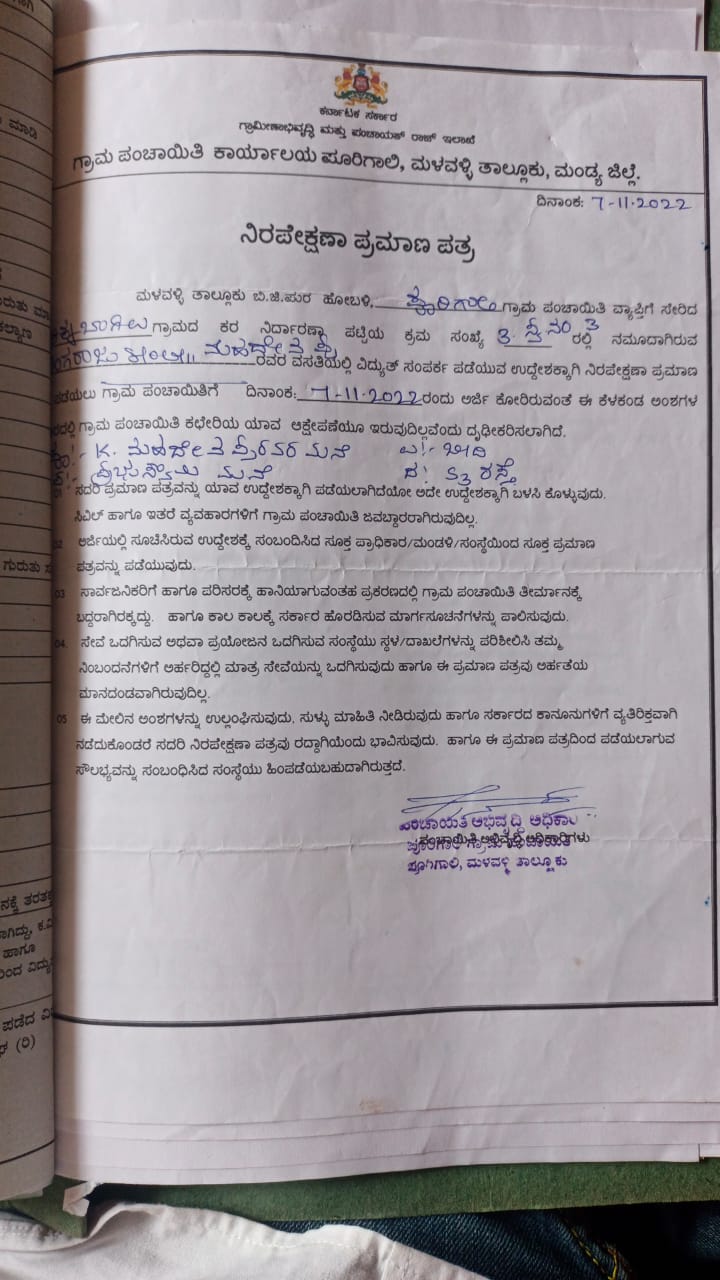 ಮಾಡಿ
ಗುರುತು
ಕರ್ನಾಟಕ ಸರ್ಕಾರ
ಗ್ರಾಮೀಣಾಭಿವೃದ್ಧಿ ಮತ್ತು ಪಂಚಾಯತ್ ರಾಜ್ ಇಲಾಖೆ
ಗ್ರಾಮ ಪಂಚಾಯಿತಿ ಕಾರ್ಯಾಲಯ ಪೂರಿಗಾಲಿ, ಮಳವಳ್ಳಿ ತಾಲ್ಲೂಕು, ಮಂಡ್ಯ ಜಿಲ್ಲೆ.
ದಿನಾಂಕ: 7-11-2022
ನಿರಪೇಕ್ಷಣಾ ಪ್ರಮಾಣ ಪತ್ರ
ಮಳವಳ್ಳಿ ತಾಲ್ಲೂಕು ಬಿ.ಜಿ.ಪುರ ಹೋಬಳಿ, ಪೂರಿಗಾಲಿ ಗ್ರಾಮ ಪಂಚಾಯಿತಿ ವ್ಯಾಪ್ತಿಗೆ ಸೇರಿದ
ಗ್ರಾಮದ ಕರ ನಿರ್ದಾರಣಾ ಪಟ್ಟಿಯ ಕ್ರಮ ಸಂಖ್ಯೆ ರಲ್ಲಿ ನಮೂದಾಗಿರುವ
ರವರ ವಸತಿಯಲ್ಲಿ ವಿದ್ಯುತ್ ಸಂಪರ್ಕ ಪಡೆಯುವ ಉದ್ದೇಶಕ್ಕಾಗಿ ನಿರಪೇಕ್ಷಣಾ ಪ್ರಮಾಣ
ಪಡೆಯಲು ಗ್ರಾಮ ಪಂಚಾಯಿತಿಗೆ ದಿನಾಂಕ: 7-11-2022 ರಂದು ಅರ್ಜಿ ಕೋರಿರುವಂತೆ ಈ ಕೆಳಕಂಡ ಅಂಶಗಳ
ಗ್ರಾಮ ಪಂಚಾಯಿತಿ ಕಛೇರಿಯ ಯಾವ ಆಕ್ಷೇಪಣೆಯೂ ಇರುವುದಿಲ್ಲವೆಂದು ದೃಢೀಕರಿಸಲಾಗಿದೆ.
K. ಮನೆ
ಮನೆ ರಸ್ತೆ
01 ಸದರಿ ಪ್ರಮಾಣ ಪತ್ರವನ್ನು ಯಾವ ಉದ್ದೇಶಕ್ಕಾಗಿ ಪಡೆಯಲಾಗಿದೆಯೋ ಅದೇ ಉದ್ದೇಶಕ್ಕಾಗಿ ಬಳಸಿ ಕೊಳ್ಳುವುದು.
ಸಿವಿಲ್ ಹಾಗೂ ಇತರೆ ವ್ಯವಹಾರಗಳಿಗೆ ಗ್ರಾಮ ಪಂಚಾಯಿತಿ ಜವಬ್ದಾರರಾಗಿರುವುದಿಲ್ಲ.
02 ಅರ್ಜಿಯಲ್ಲಿ ಸೂಚಿಸಿರುವ ಉದ್ದೇಶಕ್ಕೆ ಸಂಬಂದಿಸಿದ ಸೂಕ್ತ ಪ್ರಾಧಿಕಾರ/ಮಂಡಳಿ/ಸಂಸ್ಥೆಯಿಂದ ಸೂಕ್ತ ಪ್ರಮಾಣ
ಪತ್ರವನ್ನು ಪಡೆಯುವುದು.
03 ಸಾರ್ವಜನಿಕರಿಗೆ ಹಾಗೂ ಪರಿಸರಕ್ಕೆ ಹಾನಿಯಾಗುವಂತಹ ಪ್ರಕರಣದಲ್ಲಿ ಗ್ರಾಮ ಪಂಚಾಯಿತಿ ತೀರ್ಮಾನಕ್ಕೆ
ಬದ್ದರಾಗಿರಕ್ಕದ್ದು. ಹಾಗೂ ಕಾಲ ಕಾಲಕ್ಕೆ ಸರ್ಕಾರ ಹೊರಡಿಸುವ ಮಾರ್ಗಸೂಚನೆಗಳನ್ನು ಪಾಲಿಸುವುದು.
04. ಸೇವೆ ಒದಗಿಸುವ ಅಥವಾ ಪ್ರಯೋಜನ ಒದಗಿಸುವ ಸಂಸ್ಥೆಯು ಸ್ಥಳ/ದಾಖಲೆಗಳನ್ನು ಪರಿಶೀಲಿಸಿ ತಮ್ಮ
ನಿಂಬಂದನೆಗಳಿಗೆ ಅರ್ಹರಿದ್ದಲ್ಲಿ ಮಾತ್ರ ಸೇವೆಯನ್ನು ಒದಗಿಸುವುದು ಹಾಗೂ ಈ ಪ್ರಮಾಣ ಪತ್ರವು ಅರ್ಹತೆಯ
ಮಾನದಂಡವಾಗಿರುವುದಿಲ್ಲ.
05 ಈ ಮೇಲಿನ ಅಂಶಗಳನ್ನು ಉಲ್ಲಂಘಿಸುವುದು, ಸುಳ್ಳು ಮಾಹಿತಿ ನೀಡಿರುವುದು ಹಾಗೂ ಸರ್ಕಾರದ ಕಾನೂನುಗಳಿಗೆ ವ್ಯತಿರಿಕ್ತವಾಗಿ
ನಡೆದುಕೊಂಡರೆ ಸದರಿ ನಿರಪೇಕ್ಷಣಾ ಪತ್ರವು ರದ್ದಾಗಿಯೆಂದು ಭಾವಿಸುವುದು. ಹಾಗೂ ಈ ಪ್ರಮಾಣ ಪತ್ರದಿಂದ ಪಡೆಯಲಾಗುವ
ಸೌಲಭ್ಯವನ್ನು ಸಂಬಂಧಿಸಿದ ಸಂಸ್ಥೆಯು ಹಿಂಪಡೆಯಬಹುದಾಗಿರುತ್ತದೆ.
ಪಂಚಾಯಿತಿ ಅಭಿವೃದ್ಧಿ ಅಧಿಕಾರಿ
ಪಂಚಾಯಿತಿ ಅಭಿವೃದ್ಧಿ ಅಧಿಕಾರಿಗಳು
ಪೂರಿಗಾಲಿ ಗ್ರಾಮ ಪಂಚಾಯಿತಿ
ಪೂರಿಗಾಲಿ, ಮಳವಳ್ಳಿ ತಾಲ್ಲೂಕು
ಹಾಗೂ
ಪಡೆದ
(ರಿ)